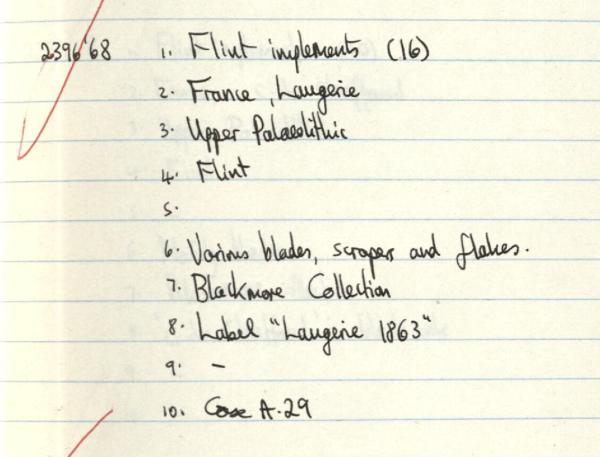 2396'68 1. Flint implements (16)
2. France, Laugerie
3. Upper Palaeolithic
4. Flint
5.
6. Various blades, scrapers and flakes.
7. Blackmore Collection
8. Label "Laugerie 1863"
9. –
10. Case A.29